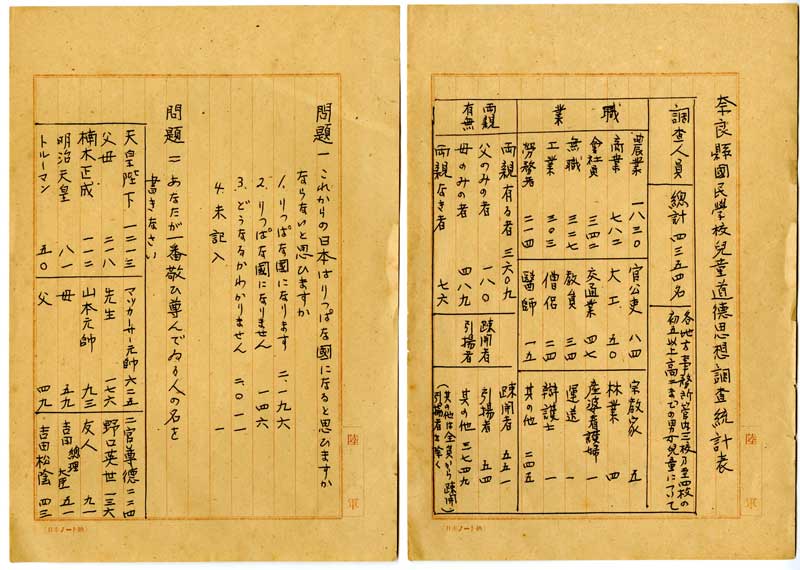 奈良縣國民學校兒童道德思想調査統計表
調査人員 總計 四三五四名 各地方事務所管内三校乃至四校の
初五以上高二までの男女兒童について
職業
農業 一八三〇 官公吏 八四 宗教家 五
商業 七八二 大工 五〇 林業 四
會社員 三四二 交通業 四七 産婆看護婦 一
無職 三二七 教員 三四 運送 一
工業 三〇三 僧侶 二四 辯護士 一
勞務者 二一四 醫師 一五 其の他 二四五
両親有無
両親有る者 三六〇九
父のみの者 一八〇
母のみの者 四八九
両親なき者 七六
疎開者
引揚者
疎開者 五五一
引揚者 五四
其の他 三七四九
(其の他は全員から疎開
引揚者を除く)
陸軍
(日本ノート納)
問題一 これからの日本はりっぱな國になると思ひますか
ならないと思ひますか
1. りっぱな國になります 二、一九六
2. りっぱな國になりません 一四六
3. どうなるかわかりません 二、〇一一
4. 未記入 一
問題二 あなたが一番敬ひ尊んでゐる人の名を
書きなさい
天皇陛下 一二一三 マッカーサー元帥 六二五 二宮尊徳 二二四
父母 二一八 先生 一七六 野口英世 一三六
楠木正成 一一二 山本元帥 九三 友人 九一
明治天皇 八一 母 五九 吉田總理大臣 五一
トルーマン 五〇 父 四九 吉田松陰 四三
陸軍
(日本ノート納)